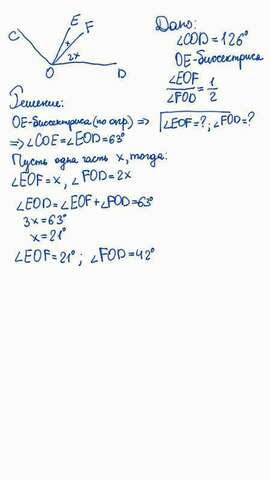 C
E
F
x
2x
O
D
Дано:
∠COD = 126°
OE-биссектриса
∠EOF/∠FOD = 1/2
∠EOF=?; ∠FOD=?
Решение:
OE-биссектриса (по опр) ⇒
⇒ ∠COE=∠EOD=63°
Пусть одна часть x, тогда:
∠EOF=x, ∠FOD=2x
∠EOD=∠EOF+∠FOD=63°
3x=63°
x=21°
∠EOF=21°; ∠FOD=42°